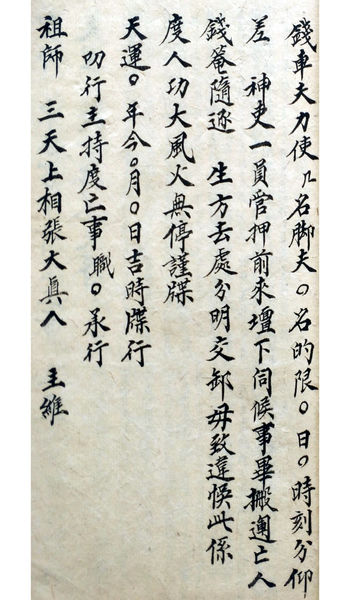 錢車夫力使几名脚夫〇名的限〇日〇時刻分仰
差 神吏一員管押前來壇下伺候事畢搬運亡人
錢菴隨逐 生方去處分明交卸毋致違悞此係
度人功大風火無停謹牒
天運〇年今〇月〇日吉時牒行
叨行主持度亡事職〇承行
祖師 三天上相張大真人 主維